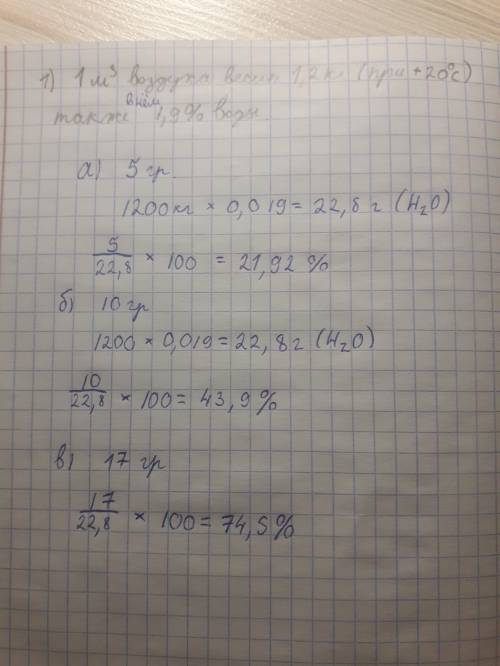 1) 1 м³ воздуха весит 1,2 кг (при +20°С)
в нём
также 1,9% воды.
а) 5 гр.
1200кг × 0,019 = 22,8 г (H₂O)
5/22,8 × 100 = 21,92 %
б) 10 гр
1200 × 0,019 = 22,8 г (H₂O)
10/22,8 × 100 = 43,9 %
в) 17 гр
17/22,8 × 100 = 74,5%